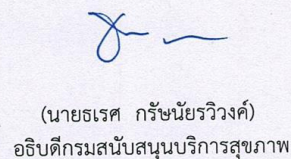 (นายธเรศ กรัษนัยรวิวงค์)
อธิบดีกรมสนับสนุนบริการสุขภาพ